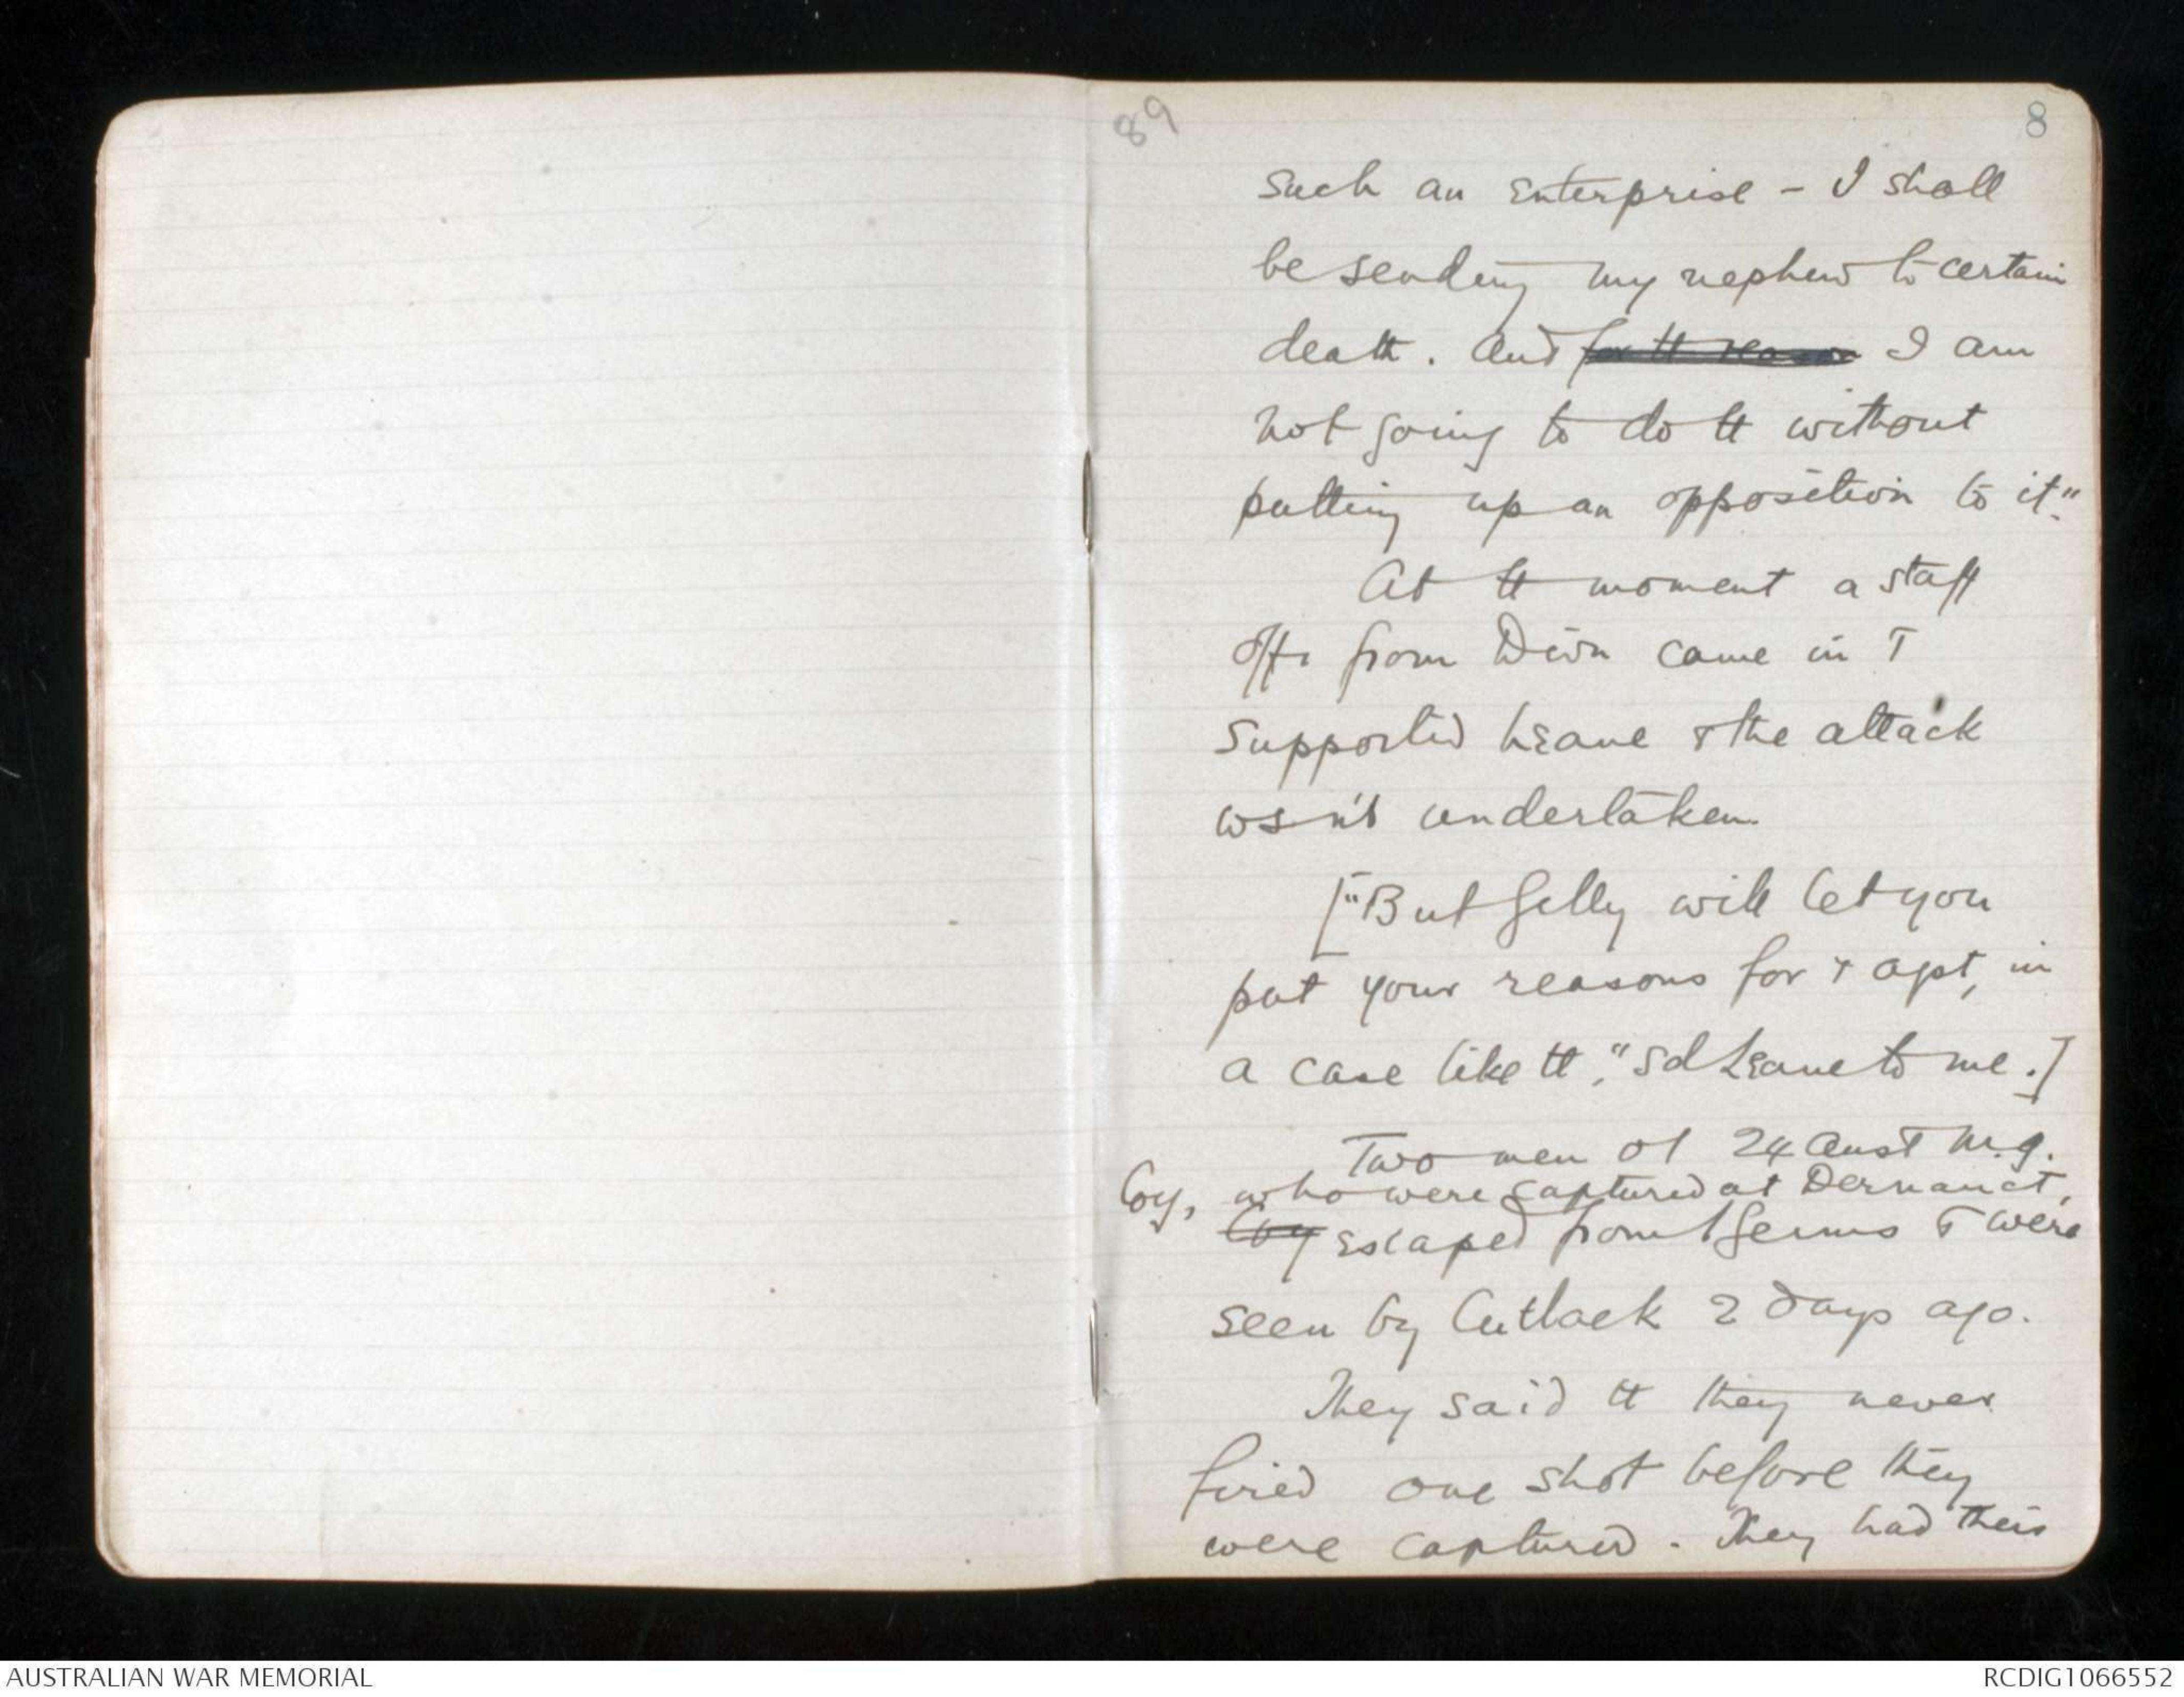 89
8
such an enterprise - I shall
be sending my nephew to certain
death. And for tt reason I am
not going to do tt without
putting up an opposition to it."
At tt moment a staff
offr from Divn came in &
supported Leane & the attack
wsn't undertaken
["But Gelly will let you
put your reasons for & agst, in
a case like tt," sd Leane to me.]
Two men of 24 Aust M.G.
Coy, who were captured at Dernanct,
Coy escaped from t Germs & were
seen by Cutlack 2 days ago.
They said tt they never
fired one shot before they
were captured. They had their
AUSTRALIAN WAR MEMORIAL
RCDIG1066552